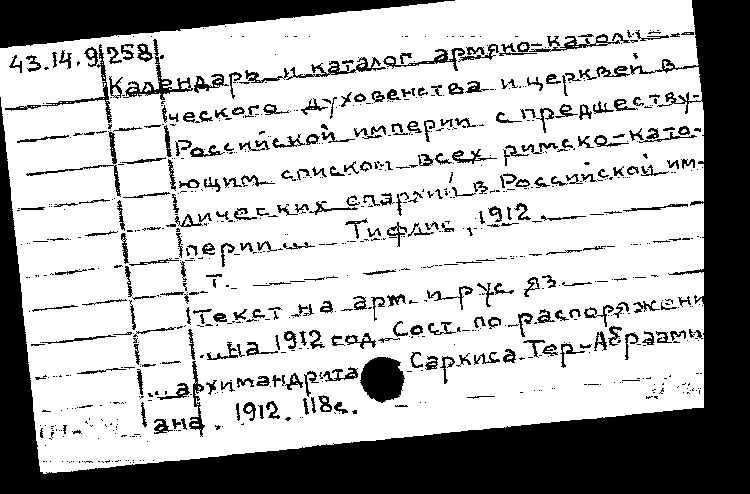 43.14.9/258.
Календарь и каталог армяно-католи-
ческого духовенства и церквей в
Российской империи с предшеству-
ющим списком всех римско-като-
лических епархий в Российской им-
перии... Тифлис, 1912.
т.
Текст на арм. и рус. яз.
...на 1912 год. Сост. по распоряжени
... архимандрита Саркиса Тер-Абраамя
ана. 1912. 118с.